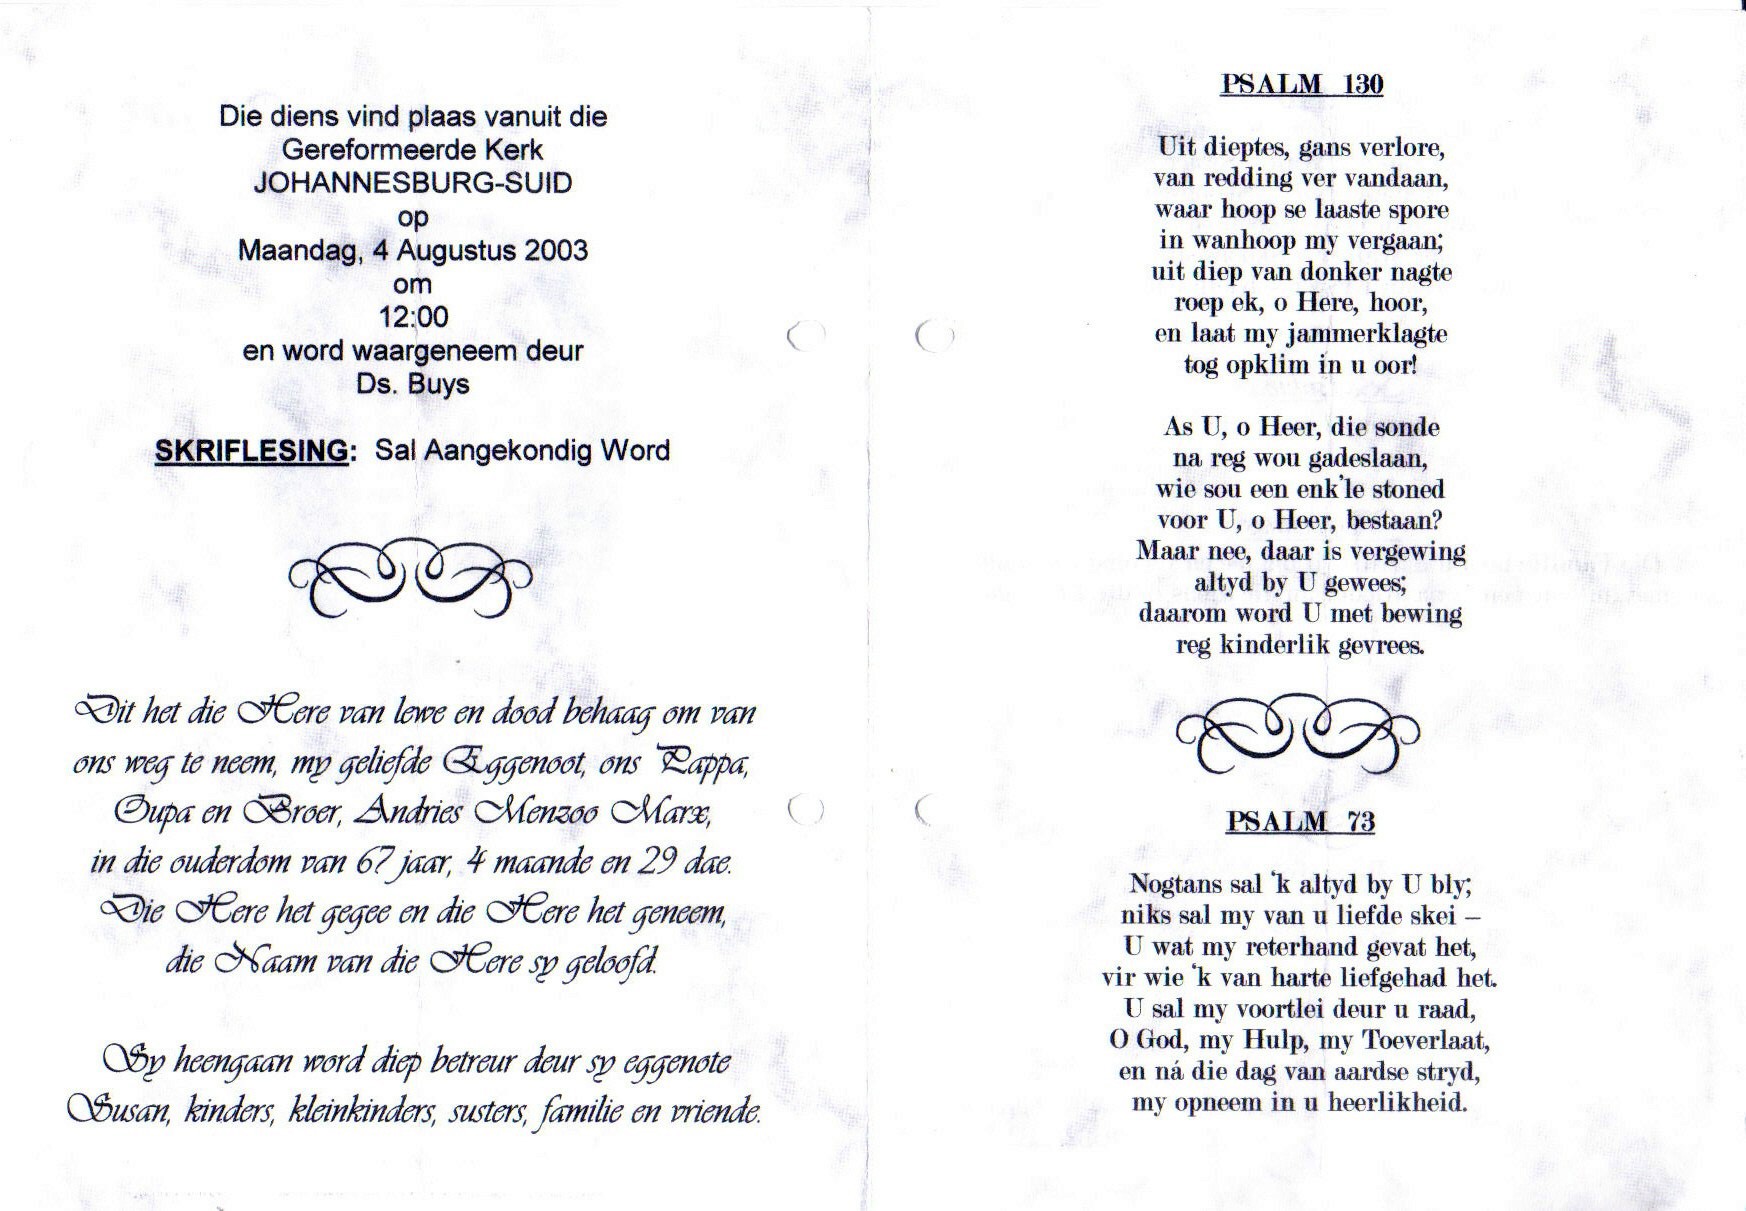 Die diens vind plaas vanuit die
Gereformeerde Kerk
JOHANNESBURG-SUID
op
Maandag, 4 Augustus 2003
om
12:00
en word waargeneem deur
Ds. Buys
SKRIFLESING: Sal Aangekondig Word
Dit het die Here van lewe en dood behaag om van
ons weg te neem, my geliefde Eggenoot, ons Pappa,
Oupa en Broer, Andries Menzoo Marx,
in die ouderdom van 67 jaar, 4 maande en 29 dae.
Die Here het gegee en die Here het geneem,
die Naam van die Here sy geloofd.
Sy heengaan word diep betreur deur sy eggenote
Susan, kinders, kleinkinders, susters, familie en vriende.
PSALM 130
Uit dieptes, gans verlore,
van redding ver vandaan,
waar hoop se laaste spore
in wanhoop my vergaan;
uit diep van donker nagte
roep ek, o Here, hoor,
en laat my jammerklagte
tog opklim in u oor!
As U, o Heer, die sonde
na reg wou gadeslaan,
wie sou een enk'le stoned
voor U, o Heer, bestaan?
Maar nee, daar is vergewing
altyd by U gewees;
daarom word U met bewing
reg kinderlik gevrees.
PSALM 73
Nogtans sal 'k altyd by U bly;
niks sal my van u liefde skei –
U wat my reterhand gevat het,
vir wie 'k van harte liefgehad het.
U sal my voortlei deur u raad,
O God, my Hulp, my Toeverlaat,
en ná die dag van aardse stryd,
my opneem in u heerlikheid.